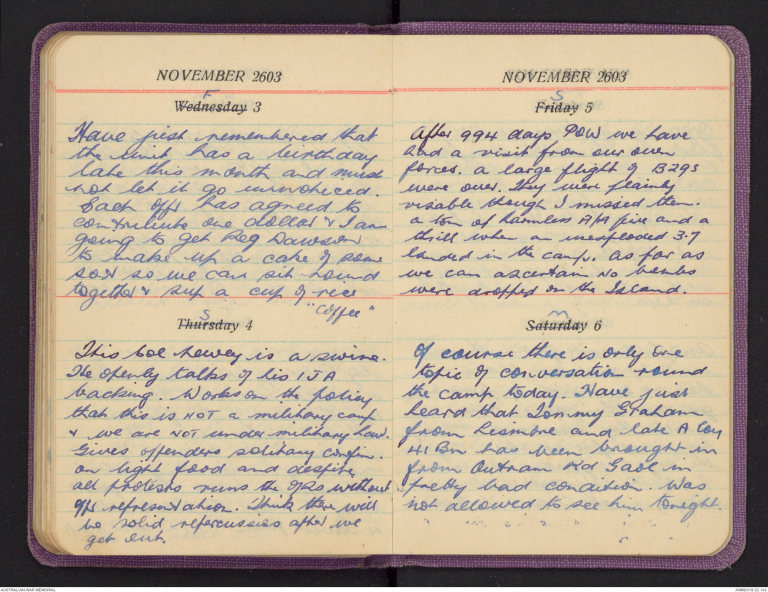 NOVEMBER 2603
F
Wednesday 3
Have just remembered that
the unit has a birthday
late this month and must
not let it go unnoticed.
Each offr has agreed to
contribute one dollar & I am
going to get Reg Dawson
to make up a cake of some
sort so we can sit round
together & sup a cup of rice
"coffee"
S
Thursday 4
This Col is a swine.
He openly talks of his IJA
backing. Works on the policy
that this is NOT a military camp
& we are NOT under military law.
Gives offenders solitary confin.
on light food and despite
all protests runs the without
offr representation. Think there will
be solid repercussins after we
get out.
NOVEMBER 2603
S
Friday 5
After 994 days POW we have
had a visit from our own
forces. a large flight of B29s
were over. They were plainly
visable though I missed them.
a ton of harmless A/A fire and a
thrill when an unexploded 3.7
landed in the camp. as far as
we can ascertain no bombs
were dropped on the Island.
M
Saturday 6
Of course there is only one
topic of conversation round
the camp today. Have just
heard that Tommy Graham
from Lismore and late A Coy
41 Bn has been brought in
from Outram Rd Gaol in
pretty bad condition. Was
not allowed to see him tonight.
AUSTRALIAN WAR MEMORIAL
AWM2016.22.142